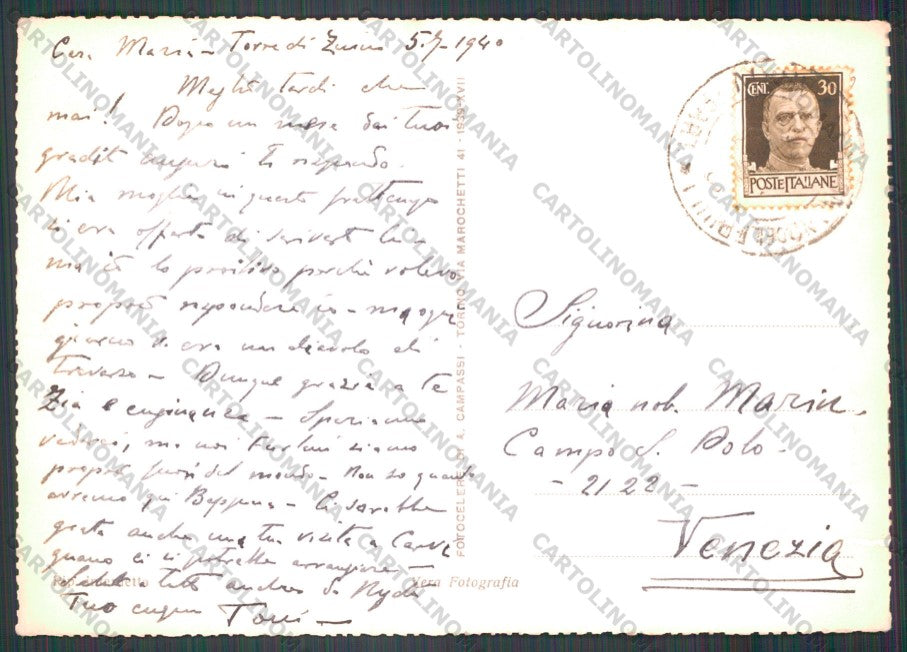 Cara Maria - Torre di Zuino 5.7-1940
Meglio tardi che
mai! Dopo un mese dai tuoi
graditi auguri ti rispondo.
Mia moglie in questo frattempo
si era offerta di scriverti lei
ma io perchè volevo
proprio rispondere io - ma ogni
giorno v'era un diavolo di
traverso - Dunque grazie a te
Zia e cuginanza - Speriamo
vederci, ma noi siamo
proprio fuori del mondo - Non so quando
avremo qui Beppina - Ci sarebbe
grata anche una tua visita a
quando ci si potrebbe arrangiare -
tutti anche da
Tuo cugino Toni -
Rip. Vera Fotografia
FOTOCELERE DI A. CAMPASSI - TORINO - VIA MAROCHETTI 41 - 1939-XVII
CENT. 30
POSTE ITALIANE
Signorina
Maria nob. Marin.
Campo S. Polo.
- 2122 -
Venezia
CARTOLINOMANIA